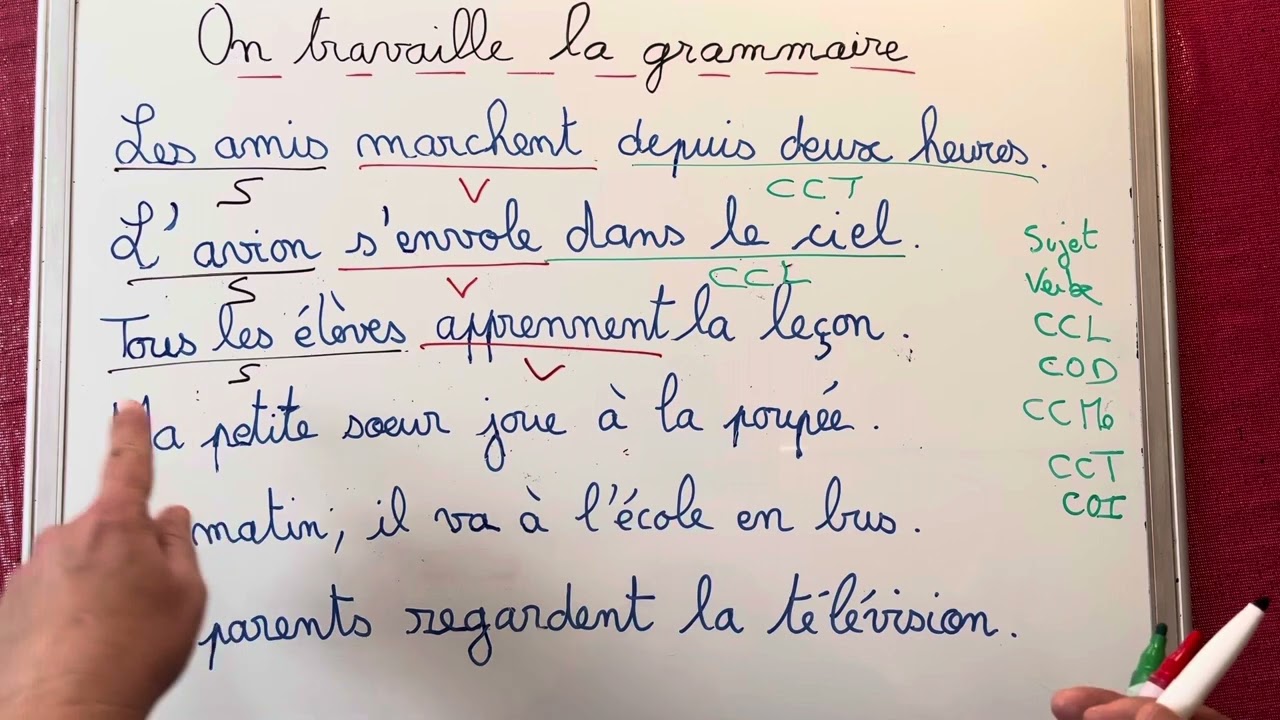 On travaille la grammaire
Les amis marchent depuis deux heures.
S V CCT
L'avion s'envole dans le ciel.
S V CCL
Tous les élèves apprennent la leçon.
S V
petite sœur joue à la poupée.
matin, il va à l'école en bus.
parents regardent la télévision.
Sujet
Verbe
CCL
COD
CCMo
CCT
COI